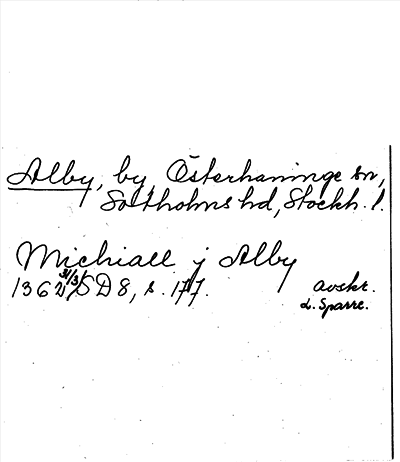 Alby, by Österhaninge sn,
Sotholms hd, Stockh. l.
Michiall j Alby
1362 31/3 SD 8, s. 177.
avskr.
L. Sparre.